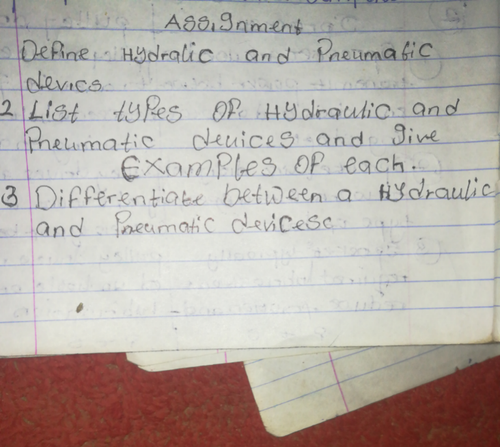 Assignment
Define Hydralic and Pneumatic
devics
2 List types of Hydraulic and
Pneumatic devices and give
Examples of each.
3 Differentiate between a Hydraulic
and Pneumatic devices